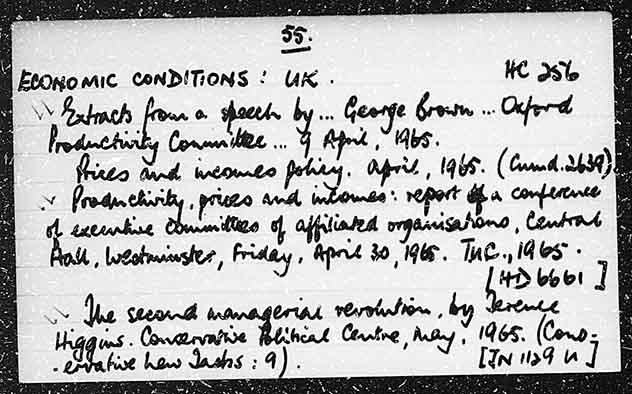 55.
ECONOMIC CONDITIONS: UK. HC 256
Extracts from a speech by... George Brown... Oxford
Productivity Committee... 9 April, 1965.
Prices and incomes policy. April, 1965. (Cmnd. 2639).
Productivity, prices and incomes: report of a conference
of executive committees of affiliated organisations, Central
Hall, Westminster, Friday, April 30, 1965. TUC., 1965.
[HD 6661]
The second managerial revolution, by Terence
Higgins. Conservative Political Centre, May, 1965. (Cons-
-ervative New Tasks: 9). [JN 1129 ]